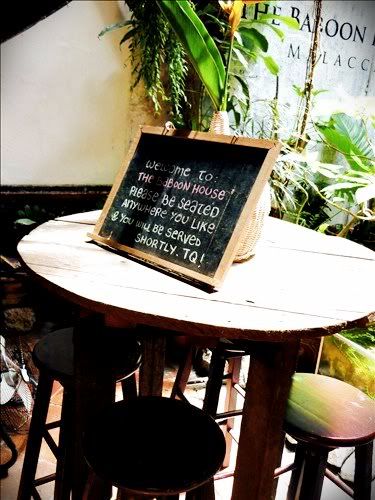 THE BABOON
MALACC
WELCOME TO:
"THE BABOON HOUSE"
PLEASE BE SEATED
ANYWHERE YOU LIKE
@ YOU WILL BE SERVED
SHORTLY. TQ!